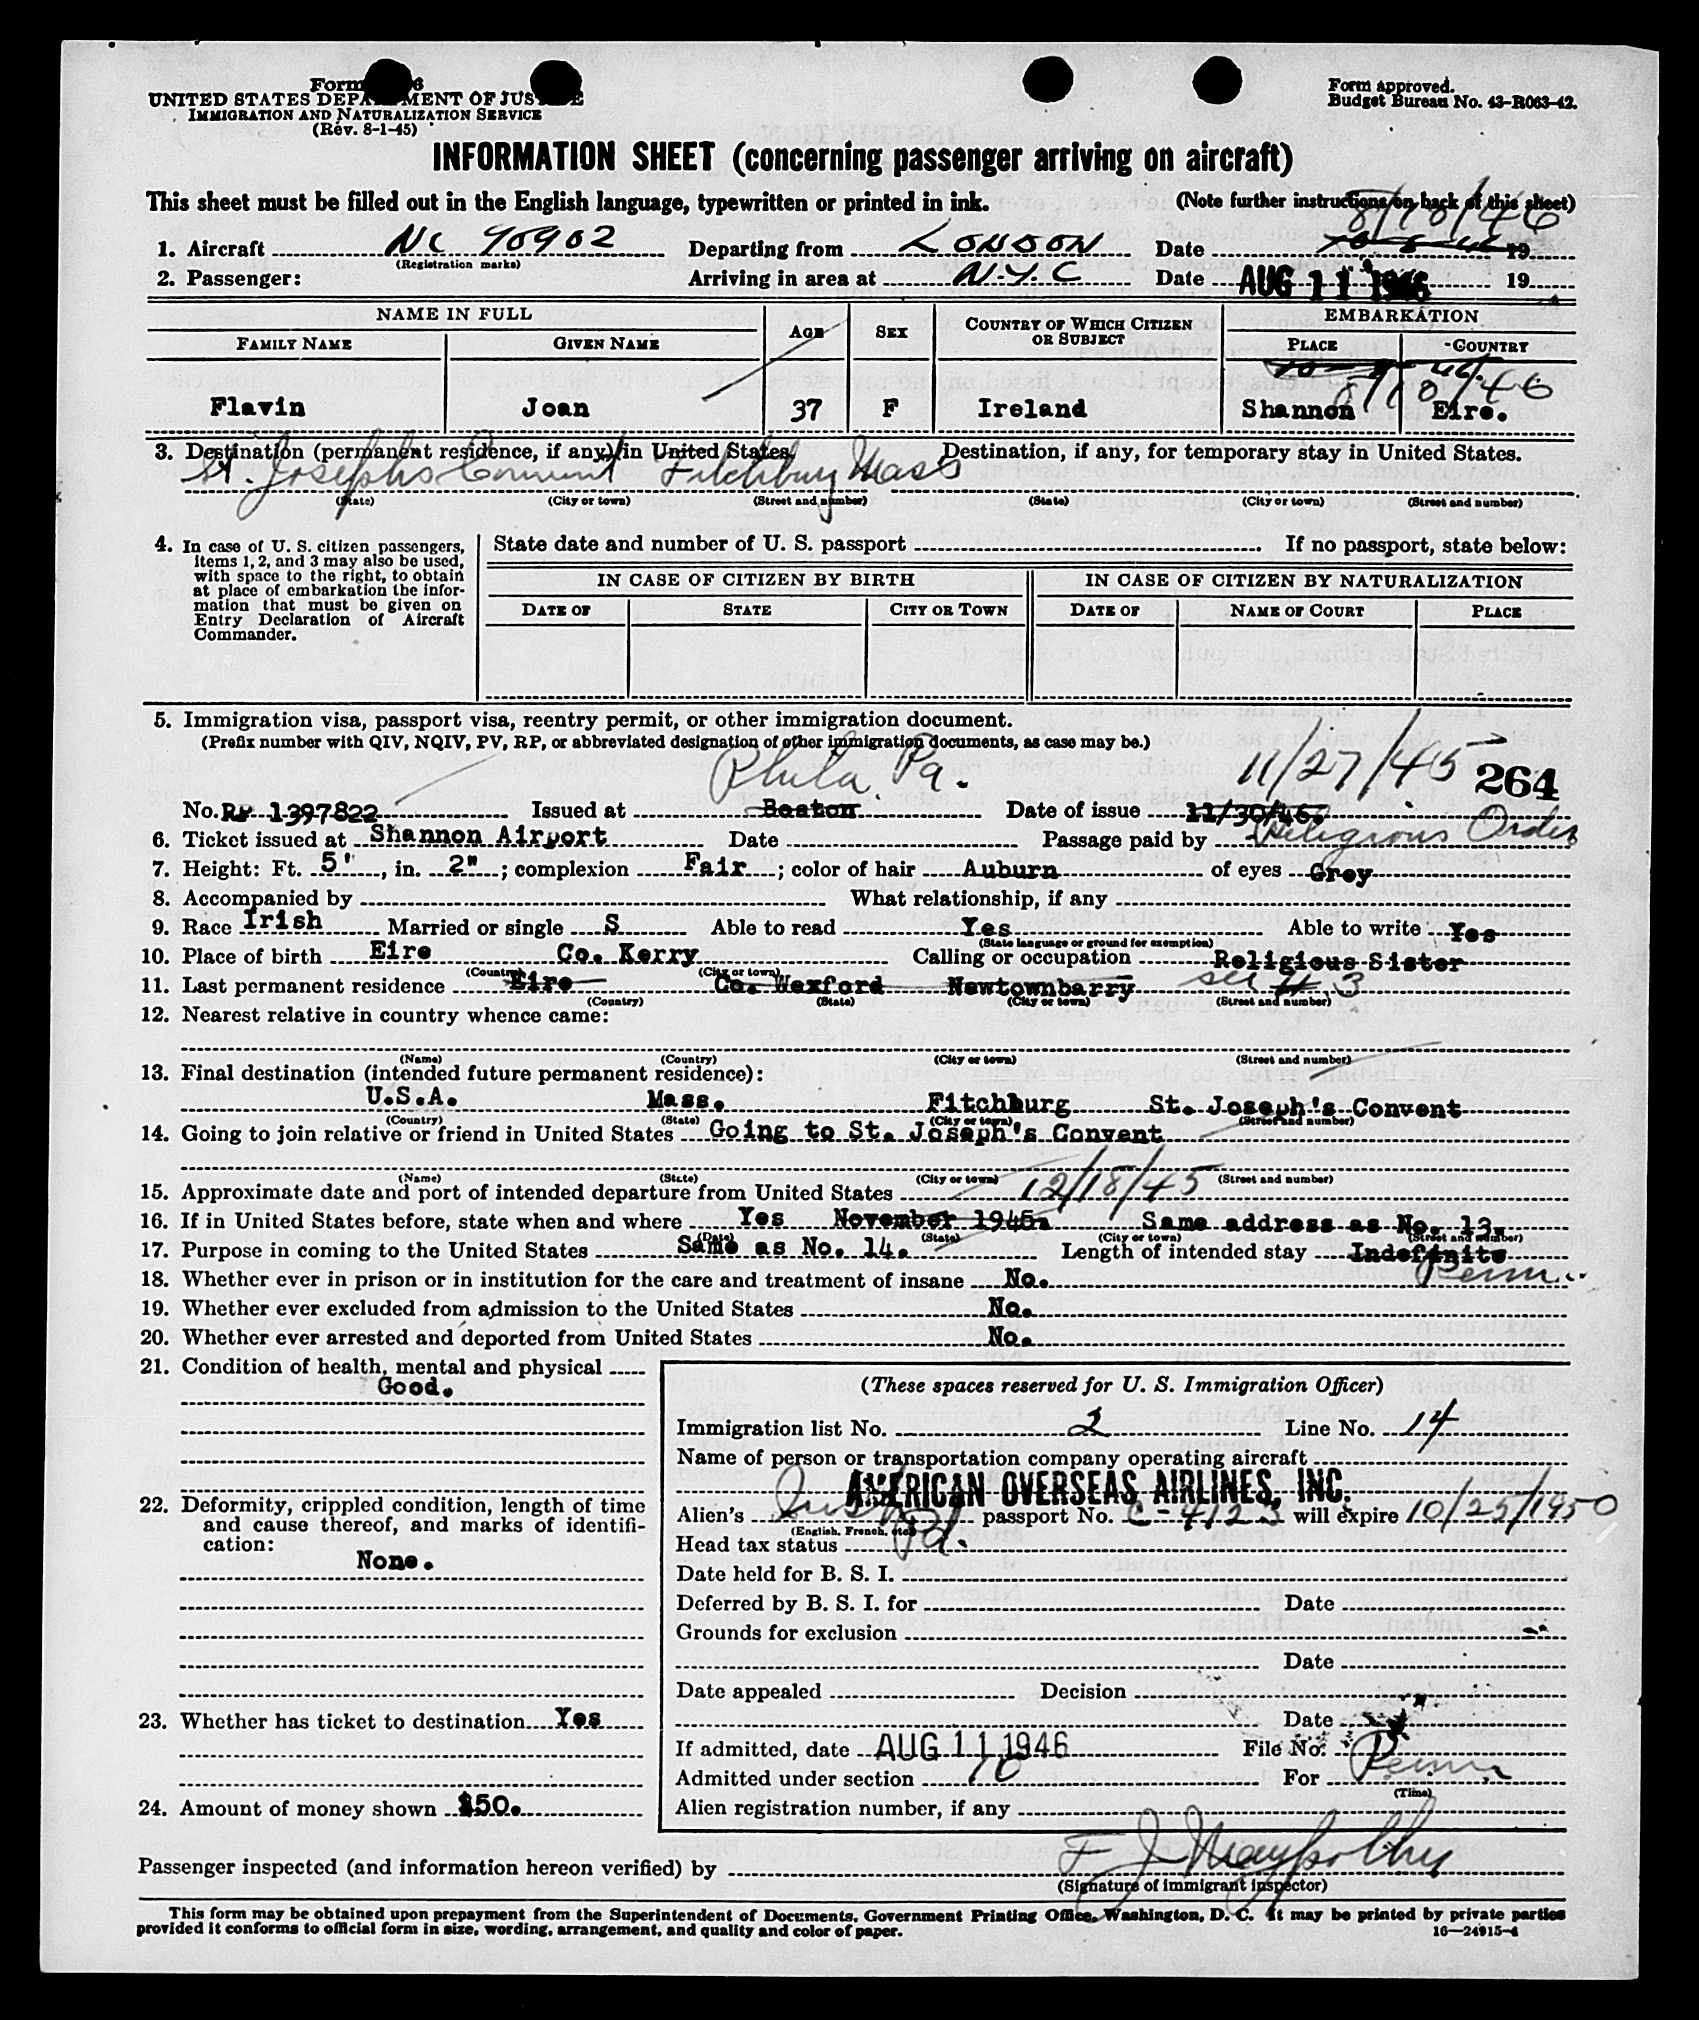 Form 6
UNITED STATES DEPARTMENT OF JUSTICE
IMMIGRATION AND NATURALIZATION SERVICE
(Rev. 8-1-45)
Form approved.
Budget Bureau No. 43-R063-42.
INFORMATION SHEET (concerning passenger arriving on aircraft)
This sheet must be filled out in the English language, typewritten or printed in ink. (Note further instructions on back of this sheet)
8/10/46
1. Aircraft NC 90902 Departing from LONDON Date 10-8-46 19
(Registration marks)
2. Passenger: Arriving in area at N.Y.C Date AUG 11 1946 19
NAME IN FULL AGE SEX COUNTRY OF WHICH CITIZEN OR SUBJECT EMBARKATION
FAMILY NAME GIVEN NAME PLACE COUNTRY
10-8-46.
8/10/46
Flavin Joan 37 F Ireland Shannon Eire.
3. Destination (permanent residence, if any) in United States. Destination, if any, for temporary stay in United States.
St. Josephs Convent Fitchburg Mass
(State) (City or town) (Street and number) (State) (City or town) (Street and number)
4. In case of U. S. citizen passengers, items 1, 2, and 3 may also be used, with space to the right, to obtain at place of embarkation the information that must be given on Entry Declaration of Aircraft Commander.
State date and number of U. S. passport If no passport, state below:
IN CASE OF CITIZEN BY BIRTH IN CASE OF CITIZEN BY NATURALIZATION
DATE OF STATE CITY OR TOWN DATE OF NAME OF COURT PLACE
5. Immigration visa, passport visa, reentry permit, or other immigration document.
(Prefix number with QIV, NQIV, PV, RP, or abbreviated designation of other immigration documents, as case may be.)
Phila. Pa. 11/27/45 264
No. RP 1397822 Issued at Boston Date of issue 11/30/46.
6. Ticket issued at Shannon Airport Date Passage paid by Religious Order
7. Height: Ft. 5', in. 2"; complexion Fair; color of hair Auburn of eyes Grey
8. Accompanied by What relationship, if any
9. Race Irish Married or single S Able to read Yes Able to write Yes
(State language or ground for exemption)
10. Place of birth Eire Co. Kerry Calling or occupation Religious Sister
(Country) (City or town)
11. Last permanent residence Eire Co. Wexford Newtownbarry see # 3
(Country) (State) (City or town) (Street and number)
12. Nearest relative in country whence came:
(Name) (Country) (City or town) (Street and number)
13. Final destination (intended future permanent residence):
U.S.A. Mass. Fitchburg St. Joseph's Convent
(Country) (State) (City or town) (Street and number)
14. Going to join relative or friend in United States Going to St. Joseph's Convent
(Name) (State) (City or town) (Street and number)
15. Approximate date and port of intended departure from United States 12/18/45
16. If in United States before, state when and where Yes November 1945. Same address as No. 13.
(Date) (State) (City or town) (Street and number)
17. Purpose in coming to the United States Same as No. 14. Length of intended stay Indefinite
Perm.
18. Whether ever in prison or in institution for the care and treatment of insane No.
19. Whether ever excluded from admission to the United States No.
20. Whether ever arrested and deported from United States No.
21. Condition of health, mental and physical
Good.
22. Deformity, crippled condition, length of time and cause thereof, and marks of identification:
None.
23. Whether has ticket to destination Yes
24. Amount of money shown $50.
(These spaces reserved for U. S. Immigration Officer)
Immigration list No. 2 Line No. 14
Name of person or transportation company operating aircraft
AMERICAN OVERSEAS AIRLINES, INC.
Alien's Irish passport No. C-4123 will expire 10/25/1950
(English, French, etc.)
Head tax status Pd.
Date held for B. S. I.
Deferred by B. S. I. for Date
Grounds for exclusion
Date
Date appealed Decision
Date
If admitted, date AUG 11 1946 File No.
Admitted under section 10 For Perm
(Time)
Alien registration number, if any
Passenger inspected (and information hereon verified) by
(Signature of immigrant inspector)
This form may be obtained upon prepayment from the Superintendent of Documents, Government Printing Office, Washington, D. C. It may be printed by private parties
provided it conforms to official form in size, wording, arrangement, and quality and color of paper. 16—24915-4